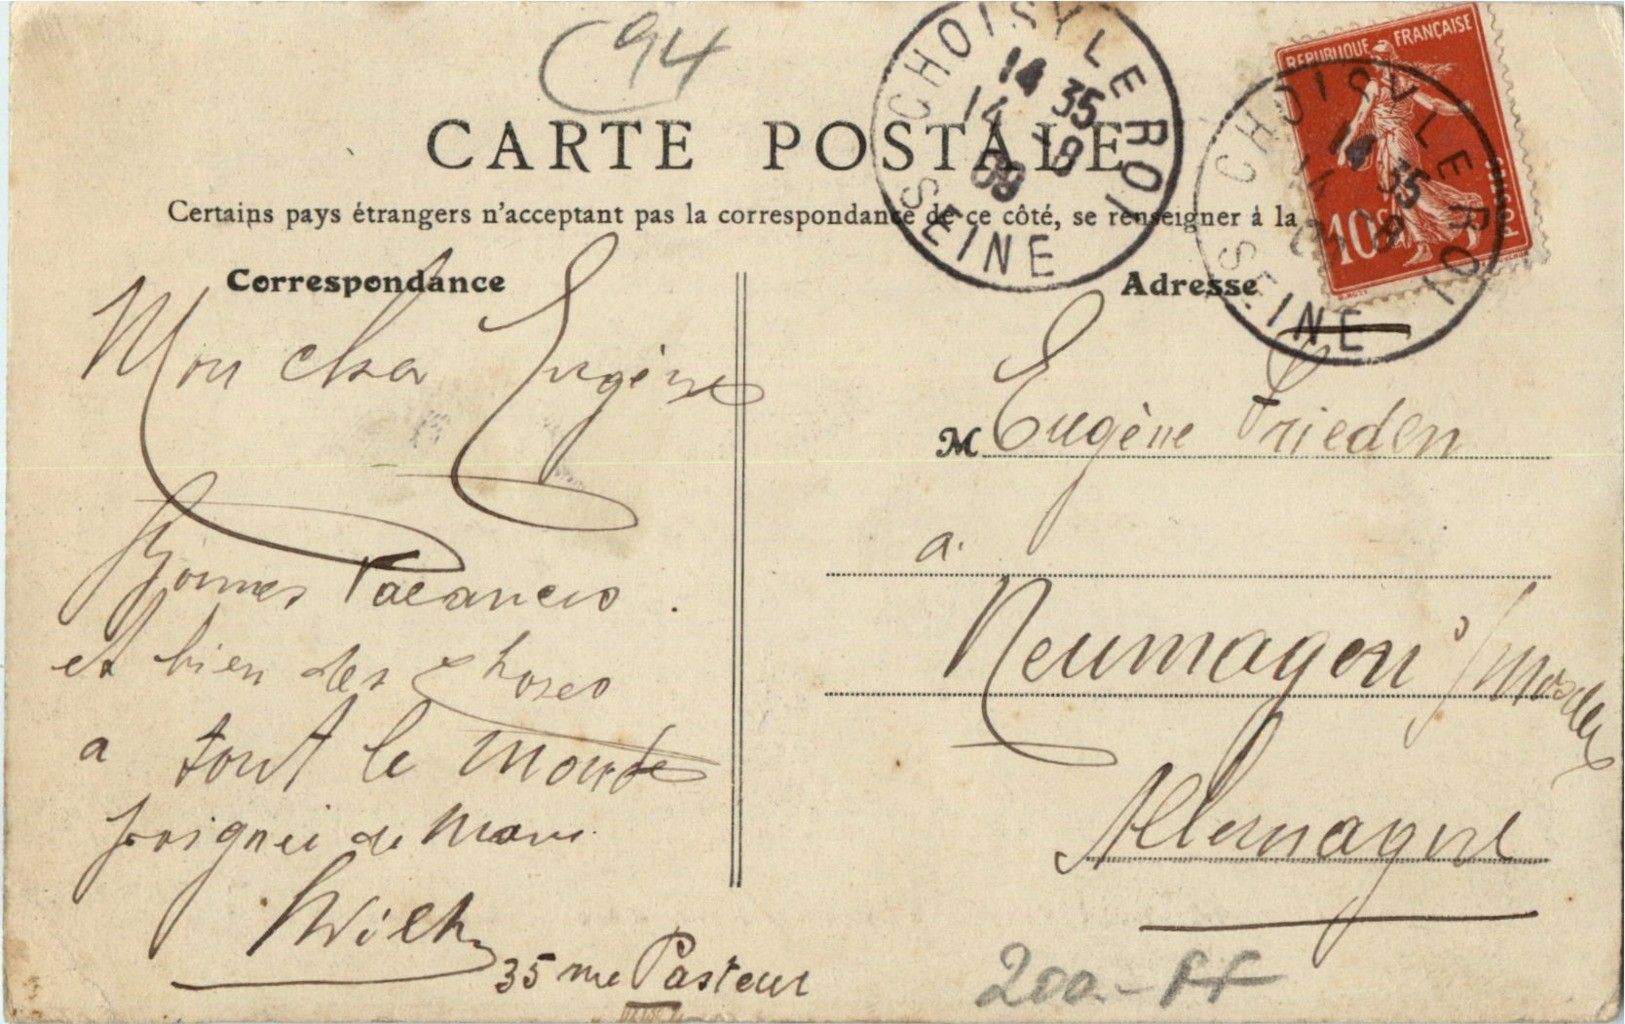 94
CARTE POSTALE
Certains pays étrangers n'acceptent pas la correspondance de ce côté, se renseigner à la
CHOISY LE ROI
14 35
14 -8
09
SEINE
REPUBLIQUE FRANÇAISE
POSTES
10c
CHOISY LE ROI
14 35
14 -8
09
SEINE
Correspondance
Mon cher Eugène
Bonnes Vacances.
et bien des choses
a tout le monde
poignée de main
35 rue Pasteur
Adresse
M Eugène Frieden
a.
Neumagen s/Mosdelle
Allemagne
200.- FF